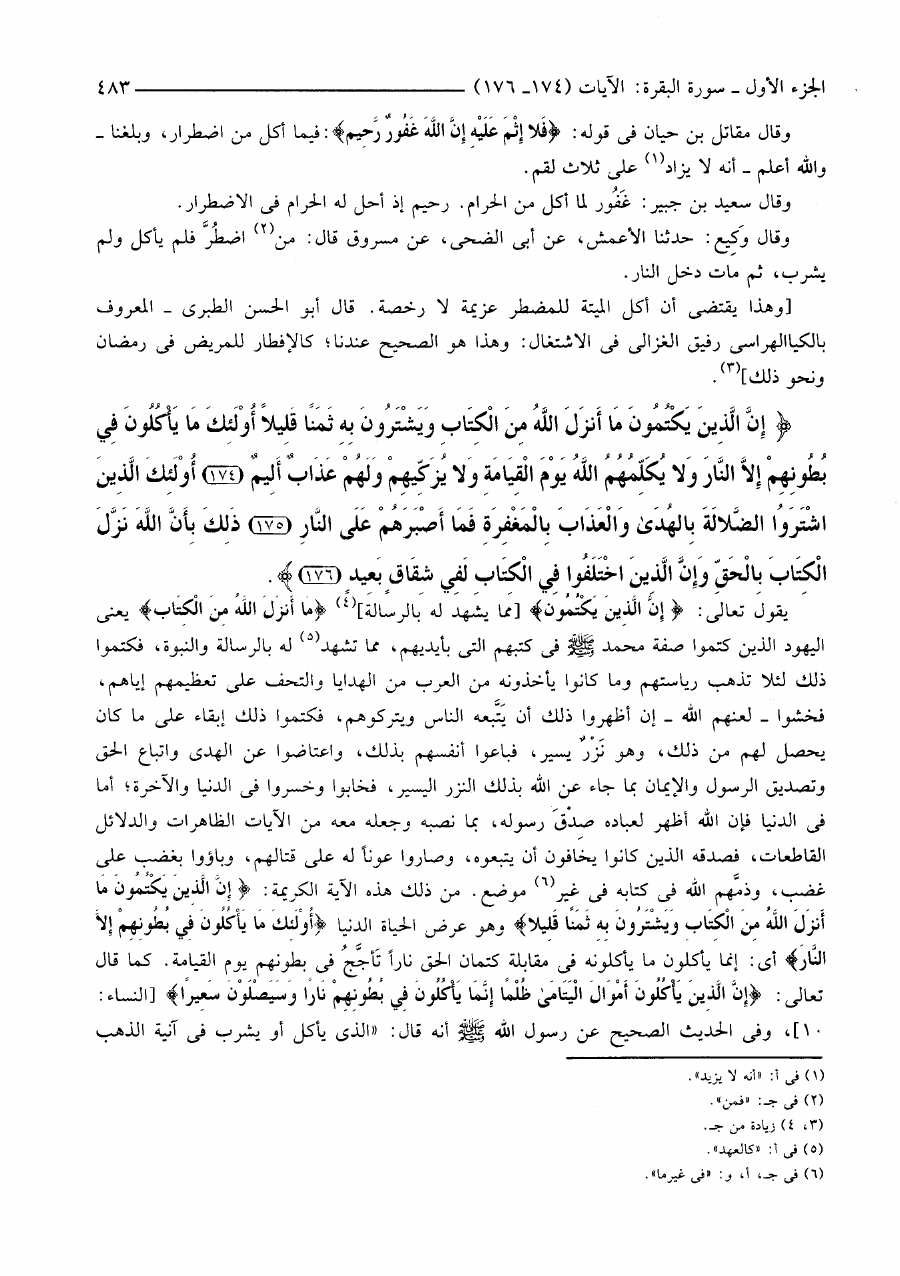 الجزء الأول ـ سورة البقرة: الآيات (١٧٤ـ ١٧٦) ــــــــــــــــــــــــــــ ٤٨٣
وقال مقاتل بن حيان فى قوله: ﴿فَلا إِثْمَ عَلَيْهِ إِنَّ اللَّهَ غَفُورٌ رَّحِيم﴾: فيما أكل من اضطرار، وبلغنا ـ
والله أعلم ـ أنه لا يزاد(١) على ثلاث لقم.
وقال سعيد بن جبير: غَفُور لما أكل من الحرام. رحيم إذ أحل له الحرام فى الاضطرار.
وقال وَكِيع: حدثنا الأعمش، عن أبى الضحى، عن مسروق قال: من(٢) اضطُرَّ فلم يأكل ولم
يشرب، ثم مات دخل النار.
[وهذا يقتضى أن أكل الميتة للمضطر عزيمة لا رخصة. قال أبو الحسن الطبرى ـ المعروف
بالكياالهراسى رفيق الغزالى فى الاشتغال: وهذا هو الصحيح عندنا؛ كالإفطار للمريض فى رمضان
ونحو ذلك](٣).
﴿ إِنَّ الَّذِينَ يَكْتُمُونَ مَا أَنزَلَ اللَّهُ مِنَ الْكِتَابِ وَيَشْتَرُونَ بِهِ ثَمَنًا قَلِيلاً أُوْلَئِكَ مَا يَأْكُلُونَ فِي
بُطُونِهِمْ إِلاَّ النَّارَ وَلا يُكَلِّمُهُمُ اللَّهُ يَوْمَ الْقِيَامَةِ وَلا يُزَكِّيهِمْ وَلَهُمْ عَذَابٌ أَلِيمٌ (١٧٤) أُوْلَئِكَ الَّذِينَ
اشْتَرَوُا الضَّلالَةَ بِالْهُدَىٰ وَالْعَذَابَ بِالْمَغْفِرَةِ فَمَا أَصْبَرَهُمْ عَلَى النَّارِ (١٧٥) ذَلِكَ بِأَنَّ اللَّهَ نَزَّلَ
الْكِتَابَ بِالْحَقِّ وَإِنَّ الَّذِينَ اخْتَلَفُوا فِي الْكِتَابِ لَفِي شِقَاقٍ بَعِيدٍ (١٧٦) ﴾.
يقول تعالى: ﴿ إِنَّ الَّذِينَ يَكْتُمُونَ﴾ [مما يشهد له بالرسالة](٤) ﴿مَا أَنزَلَ اللَّهُ مِنَ الْكِتَابِ﴾ يعنى
اليهود الذين كتموا صفة محمد ﷺ فى كتبهم التى بأيديهم، مما تشهد(٥) له بالرسالة والنبوة، فكتموا
ذلك لئلا تذهب رياستهم وما كانوا يأخذونه من العرب من الهدايا والتحف على تعظيمهم إياهم،
فخشوا ـ لعنهم الله ـ إن أظهروا ذلك أن يَتَّبعه الناس ويتركوهم، فكتموا ذلك إبقاء على ما كان
يحصل لهم من ذلك، وهو نَزْرٌ يسير، فباعوا أنفسهم بذلك، واعتاضوا عن الهدى واتباع الحق
وتصديق الرسول والإيمان بما جاء عن الله بذلك النزر اليسير، فخابوا وخسروا فى الدنيا والآخرة؛ أما
فى الدنيا فإن الله أظهر لعباده صِدْقَ رسوله، بما نصبه وجعله معه من الآيات الظاهرات والدلائل
القاطعات، فصدقه الذين كانوا يخافون أن يتبعوه، وصاروا عوناً له على قتالهم، وباؤوا بغضب على
غضب، وذمَّهم الله فى كتابه فى غير(٦) موضع. من ذلك هذه الآية الكريمة: ﴿ إِنَّ الَّذِينَ يَكْتُمُونَ مَا
أَنزَلَ اللَّهُ مِنَ الْكِتَابِ وَيَشْتَرُونَ بِهِ ثَمَنًا قَلِيلا﴾ وهو عرض الحياة الدنيا ﴿أُوْلَئِكَ مَا يَأْكُلُونَ فِي بُطُونِهِمْ إِلاَّ
النَّارَ﴾ أى: إنما يأكلون ما يأكلونه فى مقابلة كتمان الحق ناراً تَأَجَّجُ فى بطونهم يوم القيامة. كما قال
تعالى: ﴿إِنَّ الَّذِينَ يَأْكُلُونَ أَمْوَالَ الْيَتَامَىٰ ظُلْمًا إِنَّمَا يَأْكُلُونَ فِي بُطُونِهِمْ نَارا وَسَيَصْلَوْنَ سَعِيراً﴾ [النساء:
١٠]، وفى الحديث الصحيح عن رسول الله ﷺ أنه قال: «الذى يأكل أو يشرب فى آنية الذهب
(١) فى أ: «أنه لا يزيد».
(٢) فى جـ: «فمن».
(٣، ٤) زيادة من جـ.
(٥) فى أ: «كالعهد».
(٦) فى جـ، أ، و: «فى غيرما».